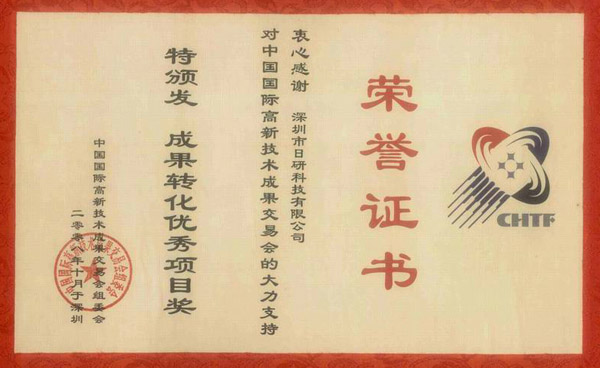 CHTF
荣誉证书
衷心感谢 深圳市日研科技有限公司
对中国国际高新技术成果交易会的大力支持
特颁发 成果转化优秀项目奖
中国国际高新技术成果交易会组委会
二零零八年十月于深圳
中国国际高新技术成果交易会组委会